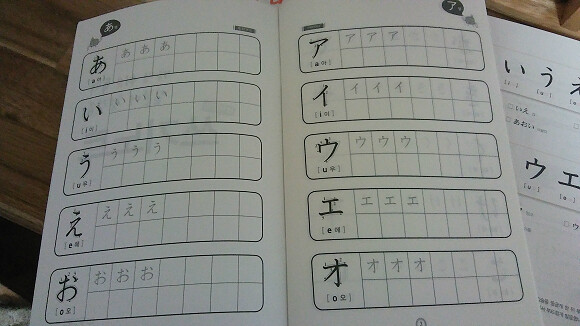 あ
あ あ あ あ
[a 아]
い い い い
[i 이]
う う う う
[u 우]
え え え え
[e 에]
お お お お
[o 오]
ア
ア ア ア ア
[a 아]
イ イ イ イ
[i 이]
ウ ウ ウ ウ
[u 우]
エ エ エ エ
[e 에]
オ オ オ オ
[o 오]
い う え
いえ
あおい
ウ エ